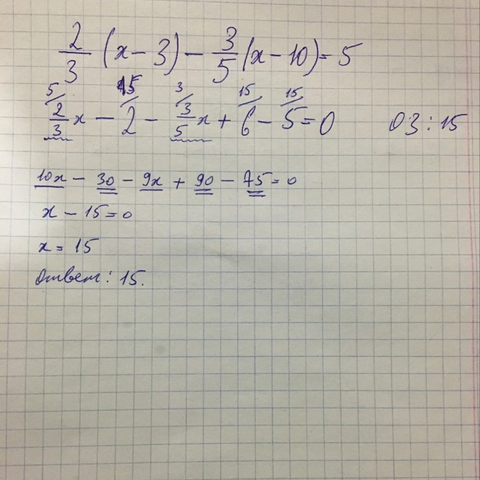 2/3 (x - 3) - 3/5 (x - 10) = 5
5 15 3 15 15
2/3 x - 2 - 3/5 x + 6 - 5 = 0 ОЗ: 15
10x - 30 - 9x + 90 - 75 = 0
x - 15 = 0
x = 15
Ответ: 15.